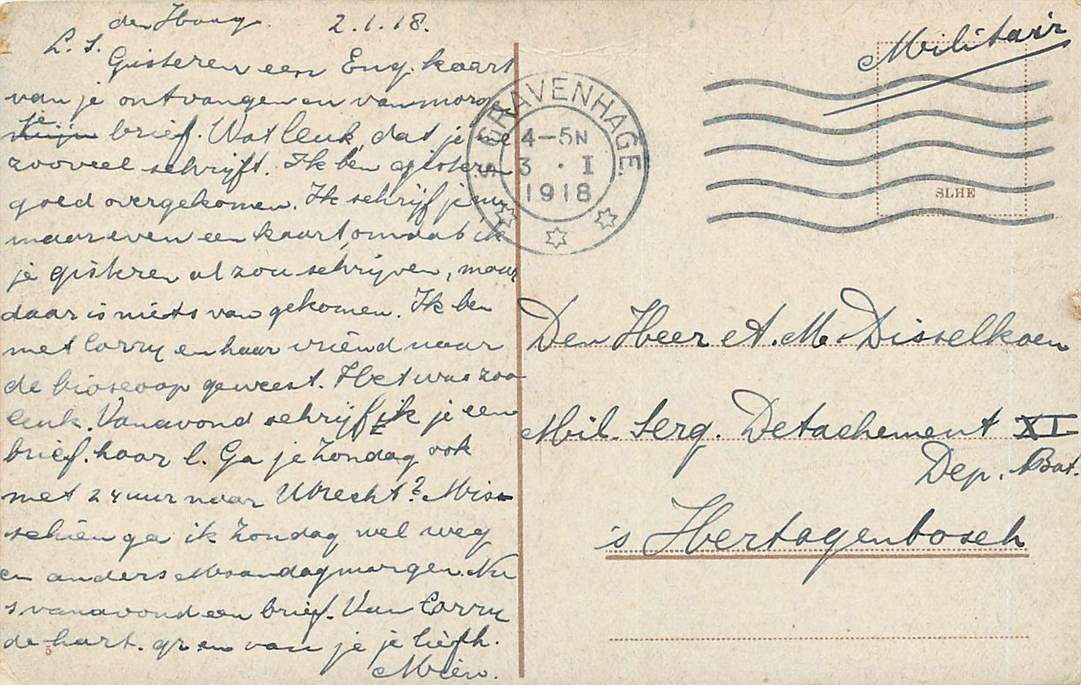 den Haag. 2.1.18.
L. S.
Gisteren een Eng. kaart
van je ontvangen en vanmorge
je brief. Wat leuk dat je me
zooveel schrijft. Ik ben gisteren
goed overgekomen. Ik schrijf je nu
maar even een kaart, omdat ik
je gisteren al zou schrijven, maar
daar is niets van gekomen. Ik ben
met Corry en haar vriend naar
de bioscoop geweest. Het was zoo
leuk. Vanavond schrijf ik je een
brief. hoor l. Ga je Zondag ook
met 24 uur naar Utrecht? Mis-
schien ga ik Zondag wel weg
en anders Maandagmorgen. Nu
s vanavond een brief. Van Corry
de hart. gr en van je je liefh.
Mien.
5
'S GRAVENHAGE.
4-5N
3 · I
1918
Militair
SLHE
Den Heer A. M. Disselkoen
Mil. Serg. Detachement XI
Dep. Bat.
's Hertogenbosch